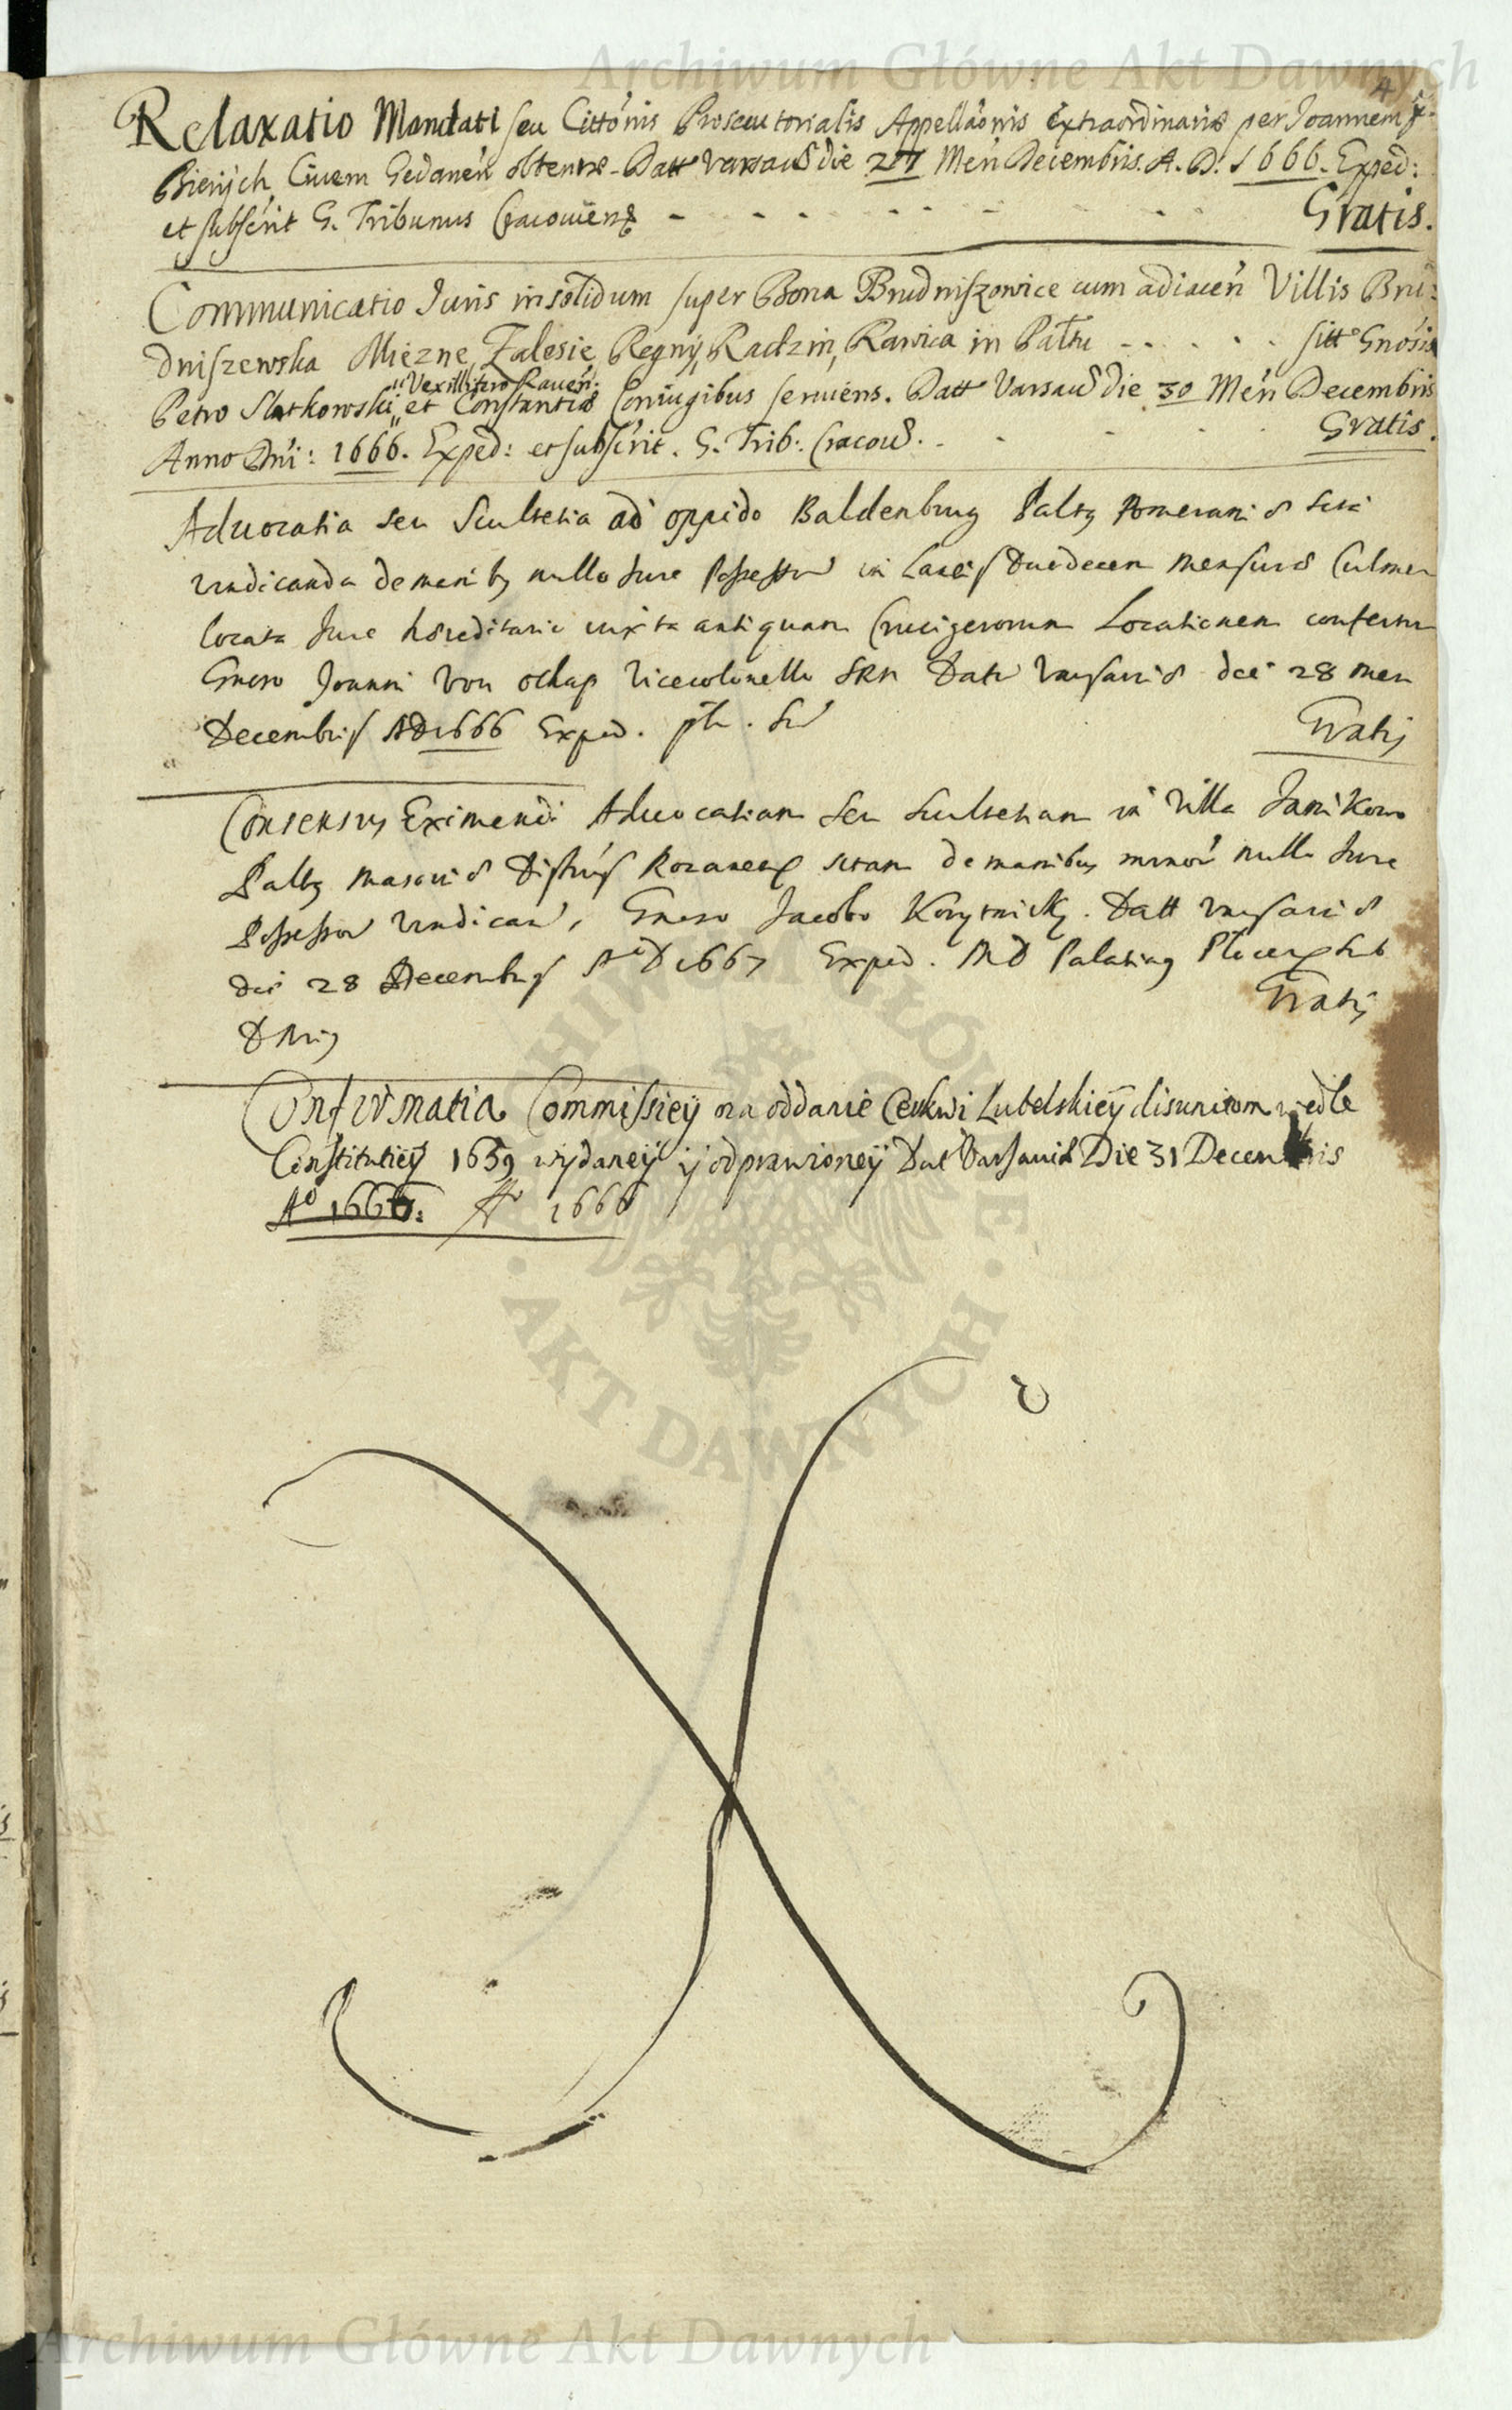 Archiwum Główne Akt Dawnych
4
Relaxatio Mandati seu Cittõnis Prosecutorialis Appellãonis extraordinariæ per Joannem
Bierÿch Civem Gedaneñ obtentæ. Datt Varsav die 27 Meñ Decembris. A. D. 1666. Exped:
et subscrit G. Tribunus Cracovien̄ - - - - - - - - Gratis.
Communicatio Juris insolidum super Bona Brudniszowice cum adiaceñ Villis Bru:
dniszewska Miezne, Zalesie, Regnÿ, Radzin, Rawica in Palttu - - . . . sitt Gnosis
"Vexillifero Raveñ:
Petro Slatkowski" et Constantiæ Coniugibus serviens. Datt Varsav die 30 Meñ Decembris
Anno Dni: 1666. Exped: et subscrit. G. Trib: Cracov. - - - - Gratis.
Advocatia seu Scultetia ad oppido Baldenburg Paltus Pomeraniæ sita
vindicanda de manibus nullo Jure Possessor in Laneis Duodecem mensuræ Culmen
locata Jure hæreditario iuxta antiquam Crucigerorum Locationem confertur
Gneroso Joanni Von Vicecolonello SRM Datt Varsaviæ die 28 men
Decembris AD 1666 Exped. Gratis
Consensus Eximendi Advocatiam seu Scultetiam in Villa Janikowo
Paltus Masoviæ Districtus Rozanensis sitam de manibus nullo Jure
Possessor vindicand, Gneroso Jacobo Korytnicky. Datt Varsaviæ
die 28 Decembris AoD 1667 Exped. MD Palatinus Plocensis
Gratis
Confirmatia Commissieÿ na oddanie Cerkwi Lubelskieÿ disunitom wedle
Constitucieÿ 1659 wÿdaneÿ ÿ odprawioneÿ Dat Varsaviæ Die 31 Decembris
Ao 1666: Ao 1666
ARCHIWUM GŁÓWNE
· AKT DAWNYCH ·
Archiwum Główne Akt Dawnych